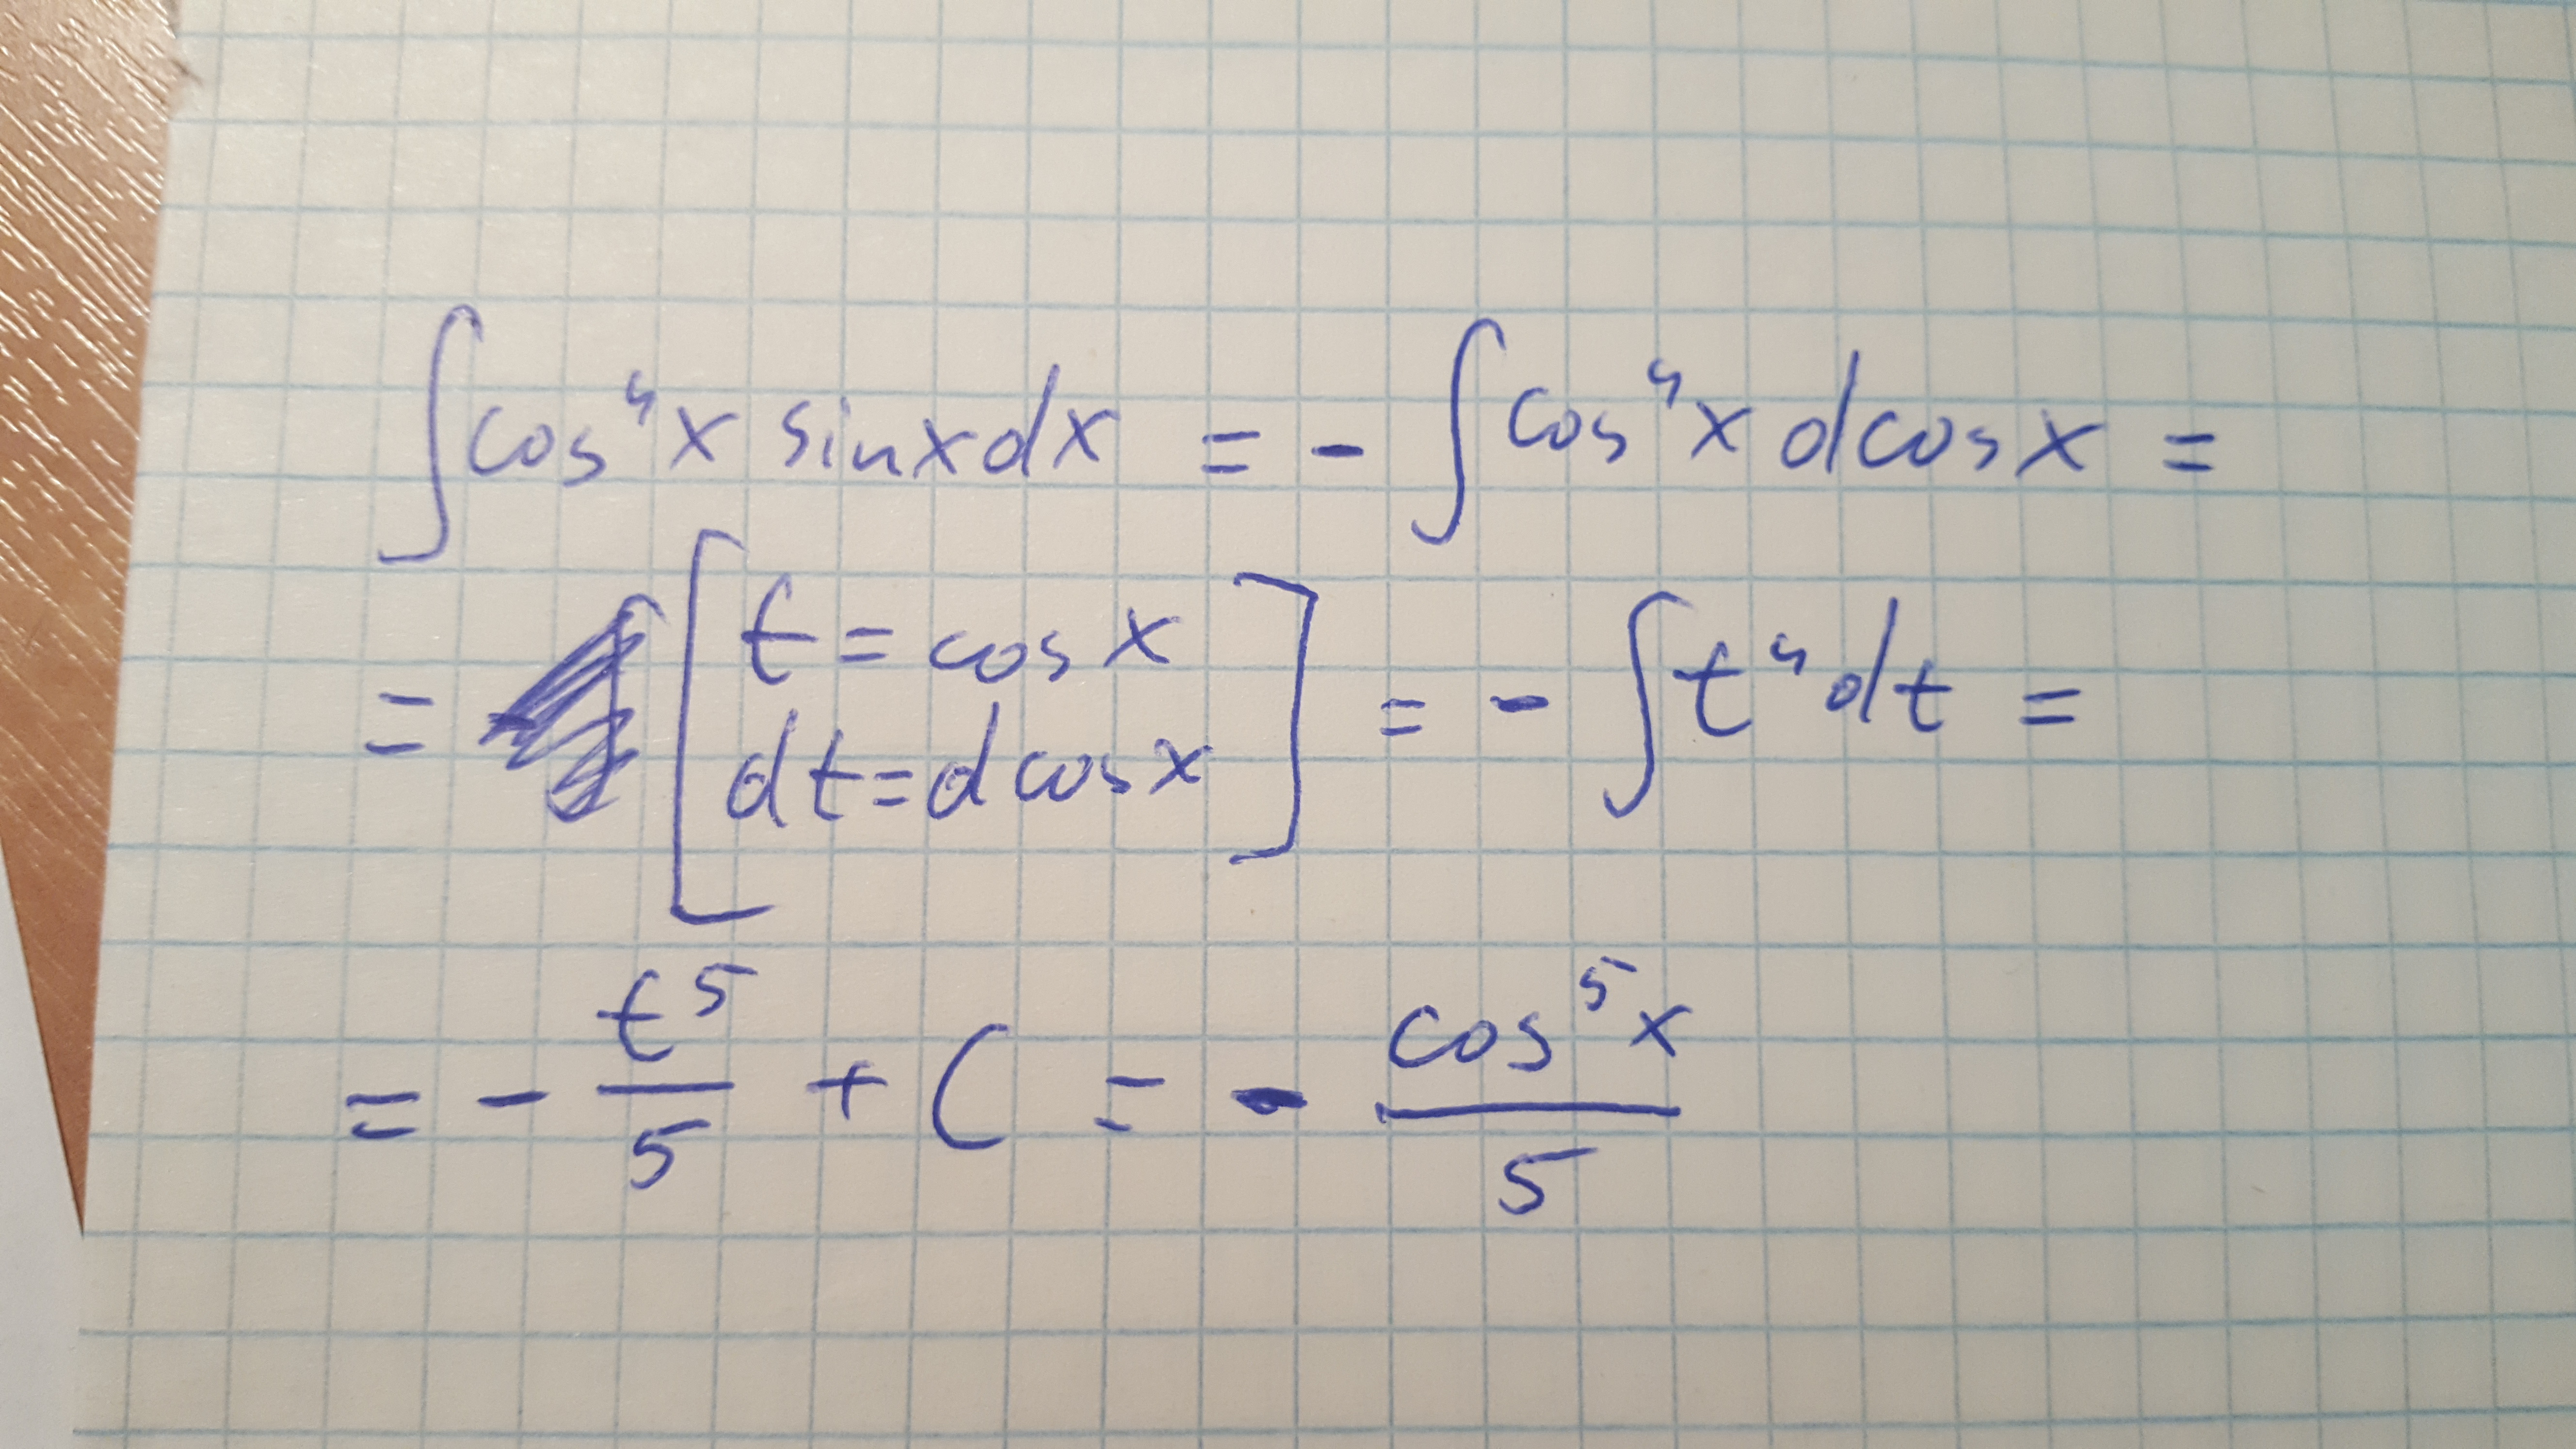 ∫cos⁴x sinxdx = - ∫cos⁴x dcosx =
= [t = cosx dt = dcosx] = - ∫t⁴dt =
= - t⁵/5 + C = - cos⁵x/5